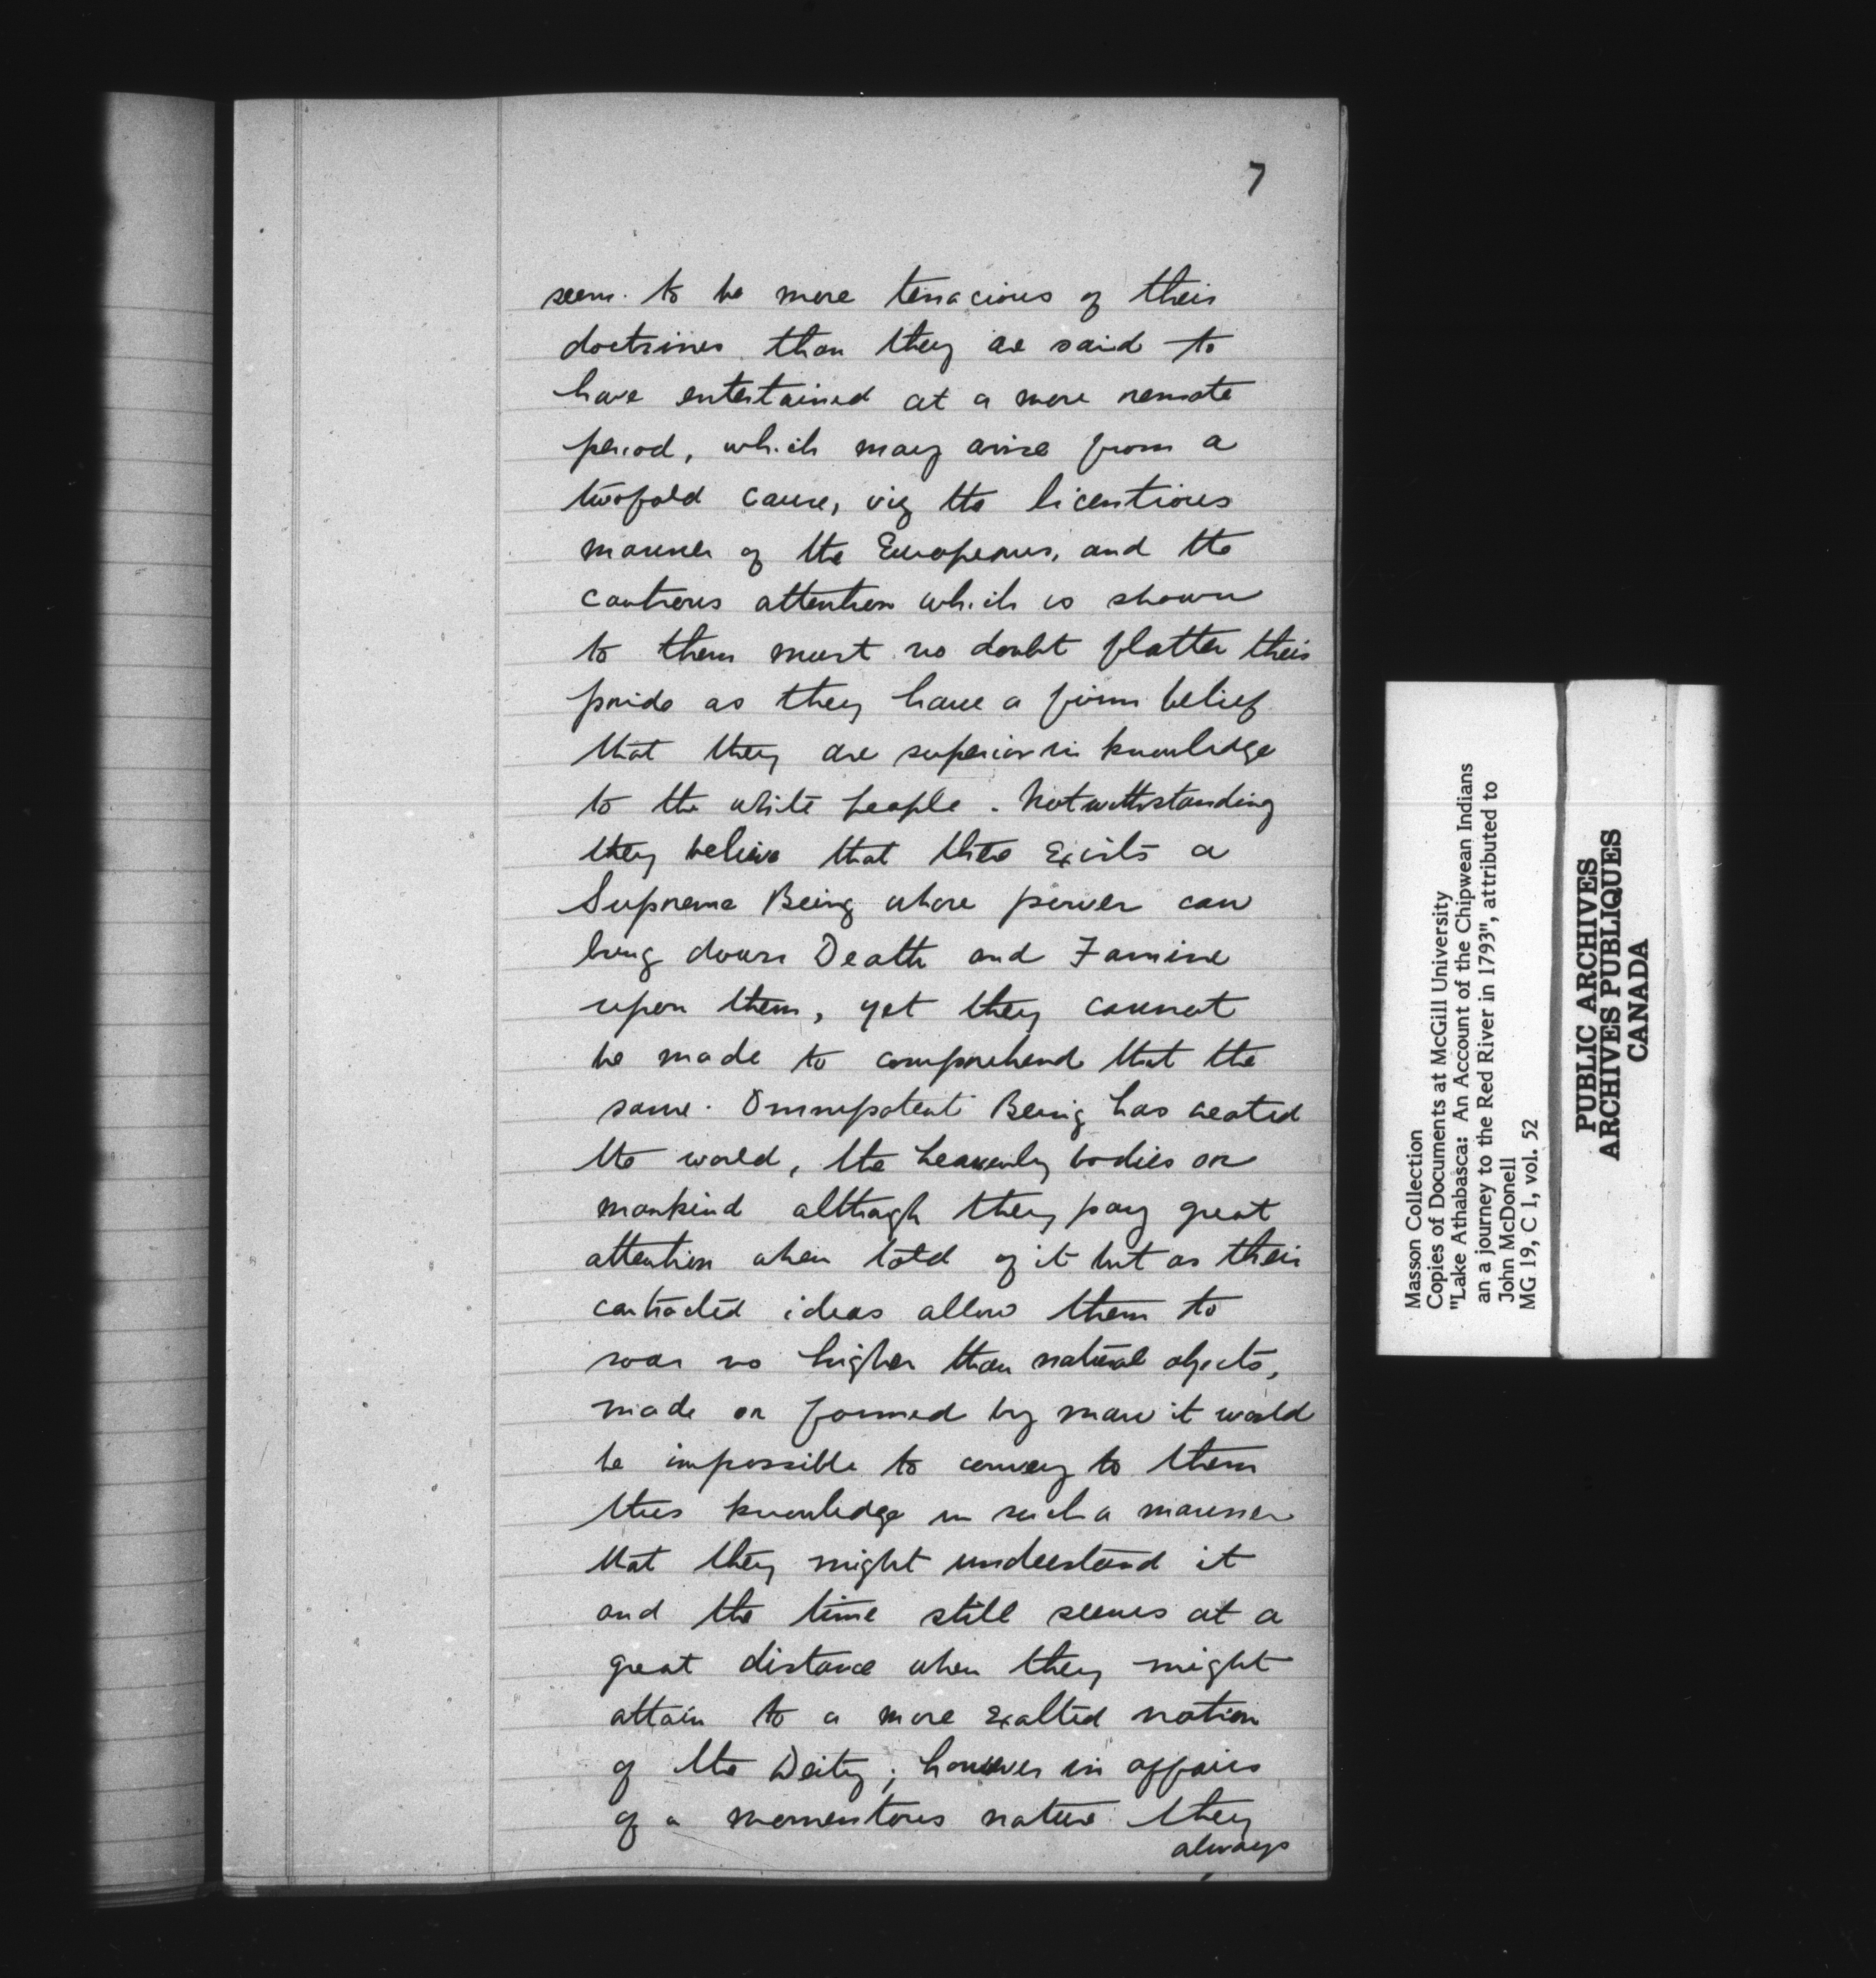 7
seem to be more tenacious of their
doctrines than they are said to
have entertained at a more remote
period, which may arise from a
twofold cause, viz the licentious
manner of the Europeans, and the
cautious attention which is shown
to them must no doubt flatter their
pride as they have a firm belief
that they are superior in knowledge
to the white people. Notwithstanding
they believe that there exists a
Supreme Being whose power can
bring down Death and Famine
upon them, yet they cannot
be made to comprehend that the
same Omnipotent Being has created
the world, the heavenly bodies or
mankind although they pay great
attention when told of it but as their
contracted ideas allow them to
soar no higher than natural objects,
made or formed by man it would
be impossible to convey to them
this knowledge in such a manner
that they might understand it
and the time still seems at a
great distance when they might
attain to a more exalted notion
of the Deity; however in affairs
of a momentous nature they
always
Masson Collection
Copies of Documents at McGill University
"Lake Athabasca: An Account of the Chipwean Indians
an a journey to the Red River in 1793", attributed to
John McDonell
MG 19, C 1, vol. 52
PUBLIC ARCHIVES
ARCHIVES PUBLIQUES
CANADA